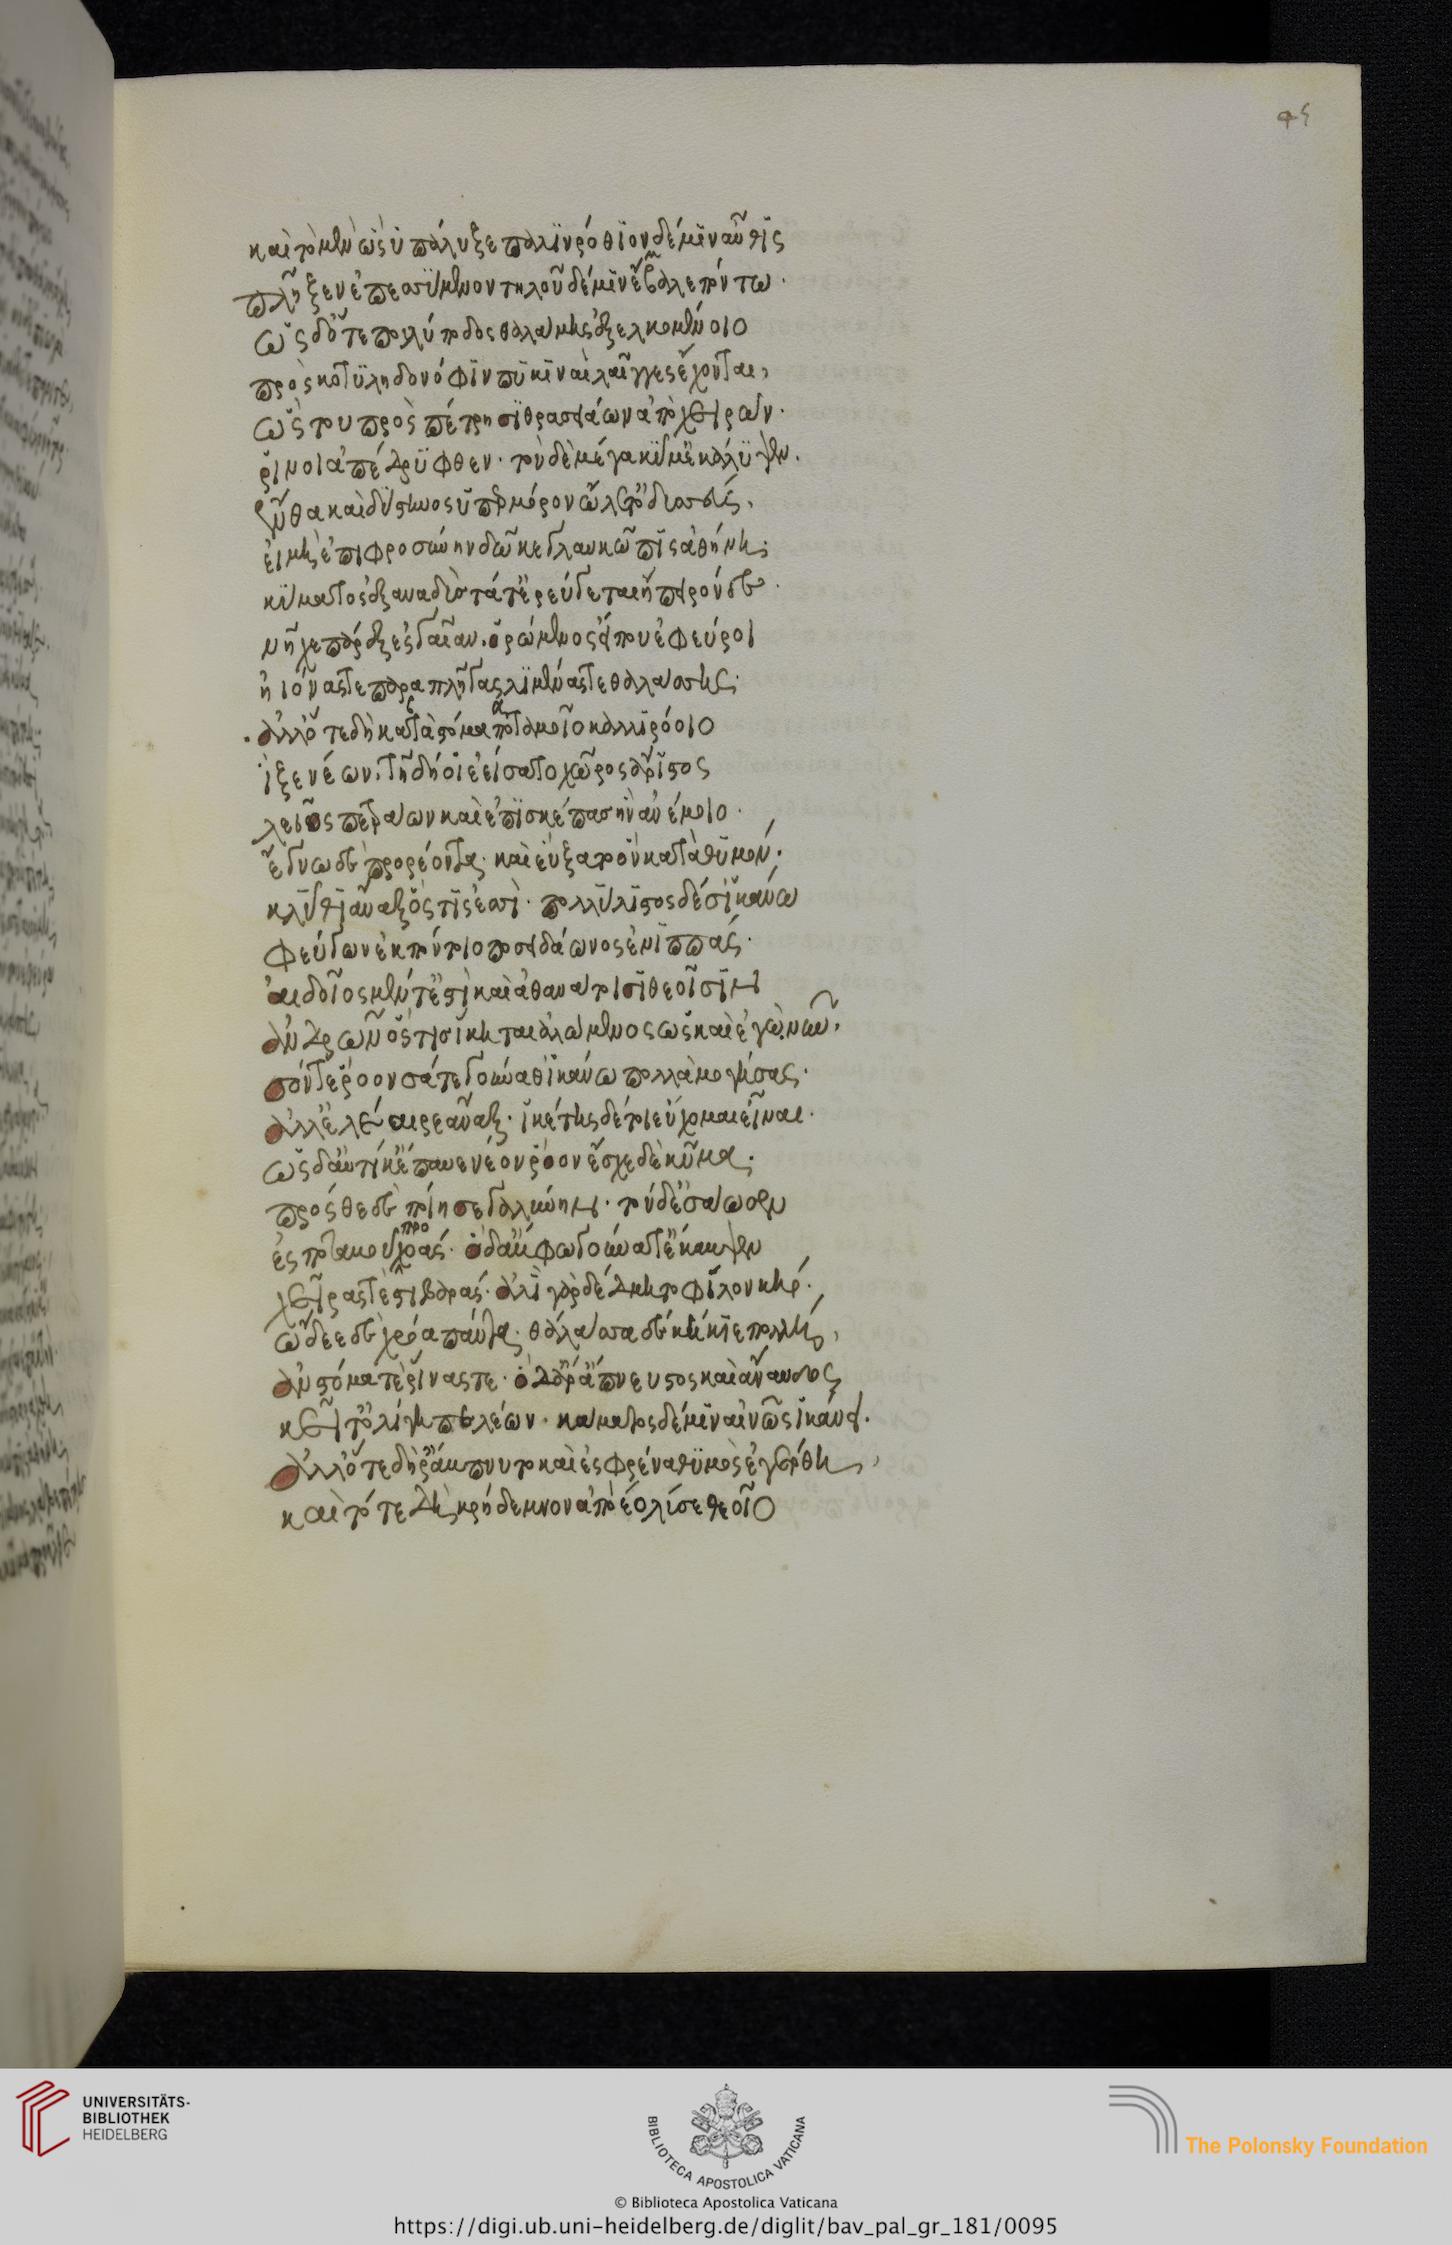 45
καὶ τὸ μὲν ὡς ὑπάλυξε παλιρρόθιον δέ μιν αὖτις
πλῆξεν ἐπεσσύμενον τηλοῦ δέ μιν ἔμβαλε πόντω·
ὡς δ' ὅτε πουλύποδος θαλάμης ἐξελκομένοιο
πρὸς κοτυληδονόφιν πυκιναὶ λάιγγες ἔχονται,
ὣς τοῦ πρὸς πέτρησι θρασειάων ἀπὸ χειρῶν·
ῥινοὶ ἀπέδρυφθεν· τὸν δὲ μέγα κῦμ' ἐκάλυψεν.
ἔνθα καὶ δύστηνος ὑπὲρ μόρον ὤλετ' ὀδυσσεύς,
εἰ μὴ ἐπιφροσύνην δῶκε γλαυκῶπις ἀθήνη·
κύματος ἐξαναδὺς τά τ' ἐρεύγεται ἤπειρόνδε·
νῆχε παρὲξ ἐς γαῖαν ὁρώμενος εἴ που ἐφεύροι
ἠιόνας τε παραπλῆγας λιμένας τε θαλάσσης·
ἀλλ' ὅτε δὴ κατὰ στόμα ποταμοῖο καλλιρόοιο
ἷξε νέων, τῇ δή οἱ ἐείσατο χῶρος ἄριστος
λεῖος πετράων καὶ ἐπὶ σκέπας ἦν ἀνέμοιο·
ἔγνω δὲ προρέοντα· καὶ εὔξατο ὃν κατὰ θυμόν·
κλῦθι ἄναξ ὅτις ἐσσί· πολλύλιστος δέ σ' ἱκάνω
φεύγων ἐκ πόντοιο ποσειδάωνος ἐνιπάς·
αἰδοῖος μέν τ' ἐστὶ καὶ ἀθανάτοισι θεοῖσιν
ἀνδρῶν ὅστις ἵκηται ἀλώμενος ὡς καὶ ἐγὼ νῦν,
σόν τε ῥόον σά τε γούναθ' ἱκάνω πολλὰ μογήσας·
ἀλλ' ἐλέαιρε ἄναξ· ἱκέτης δέ τοι εὔχομαι εἶναι·
ὣς δ' αὐτίκ' ἔπαυεν ἑὸν ῥόον ἔσχε δὲ κῦμα·
πρόσθε δὲ ποίησε γαλήνην· τὸν δ' ἐσάωσεν
ἐς ποταμοῦ προχοάς· ὁ δ' ἄμφω γούνατ' ἔκαμψεν
χεῖράς τε στιβαράς· ἁλὶ γὰρ δέδμητο φίλον κῆρ·
ὤδεε δὲ χρόα πάντα· θάλασσα δὲ κήκιε πολλὴ,
ἂν στόμα τὲ ῥῖνάς τε· ὁ δ' ἄρ' ἄπνευστος καὶ ἄναυδος
κεῖτ' ὀλιγηπελέων· κάματος δέ μιν αἰνὸς ἵκανεν·
ἀλλ' ὅτε δή ῥ' ἄμπνυτο καὶ ἐς φρένα θυμὸς ἐγέρθη,
καὶ τότε δὴ κρήδεμνον ἀπὸ ἕο λῦσε θεοῖο
UNIVERSITÄTS-
BIBLIOTHEK
HEIDELBERG
BIBLIOTECA APOSTOLICA VATICANA
The Polonsky Foundation
© Biblioteca Apostolica Vaticana
https://digi.ub.uni-heidelberg.de/diglit/bav_pal_gr_181/0095